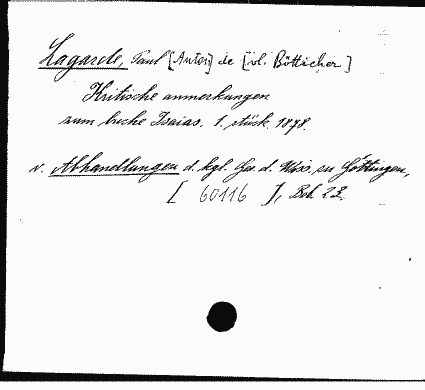 Lagarde, Paul [Anton] de [vl. Bötticher]
Kritische anmerkungen
zum buche Isaias. 1. stück. 1878.
v. Abhandlungen d. kgl. Ges. d. Wiss. zu Göttingen,
[60116], Bd. 23.